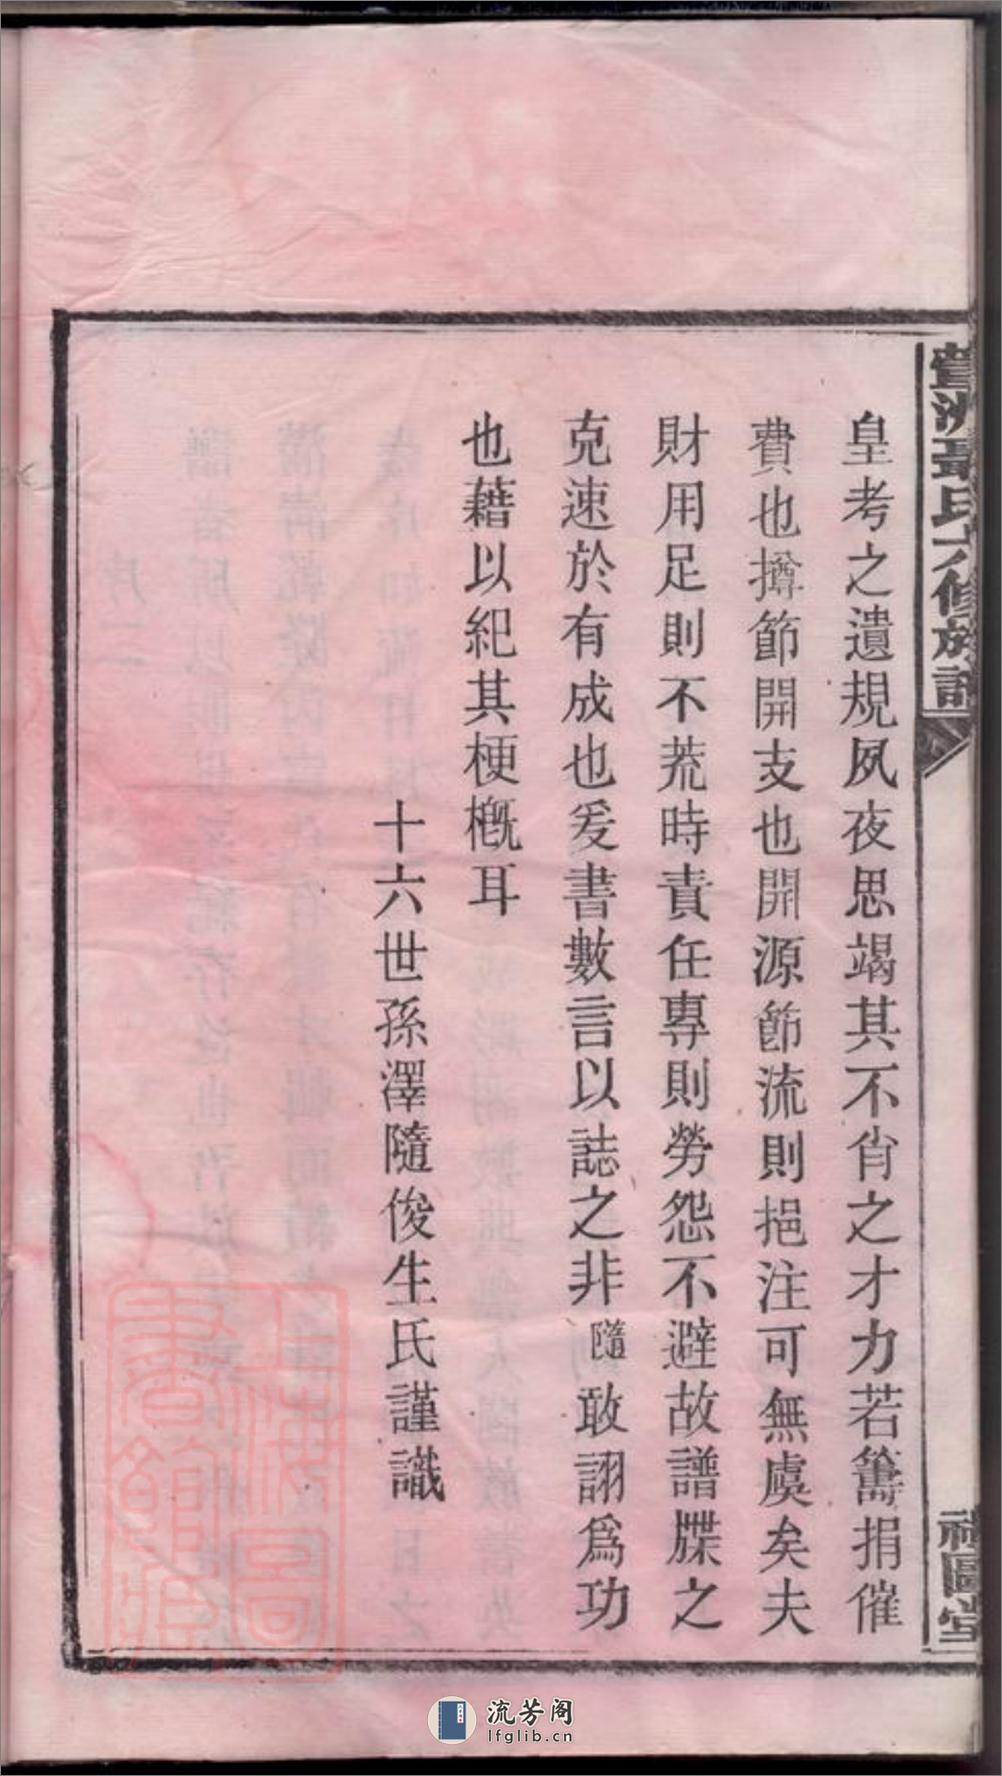 皇考之遺規夙夜思竭其不肖之才力若籌捐催
費也撙節開支也開源節流則挹注可無虞矣夫
財用足則不荒時責任專則勞怨不避故譜牒之
克速於有成也爰書數言以誌之非隨敢詡爲功
也藉以紀其梗槪耳
十六世孫澤隨俊生氏謹識
氏六修族譜
圖堂
上海圖書館藏
流芳阁
lfglib.cn